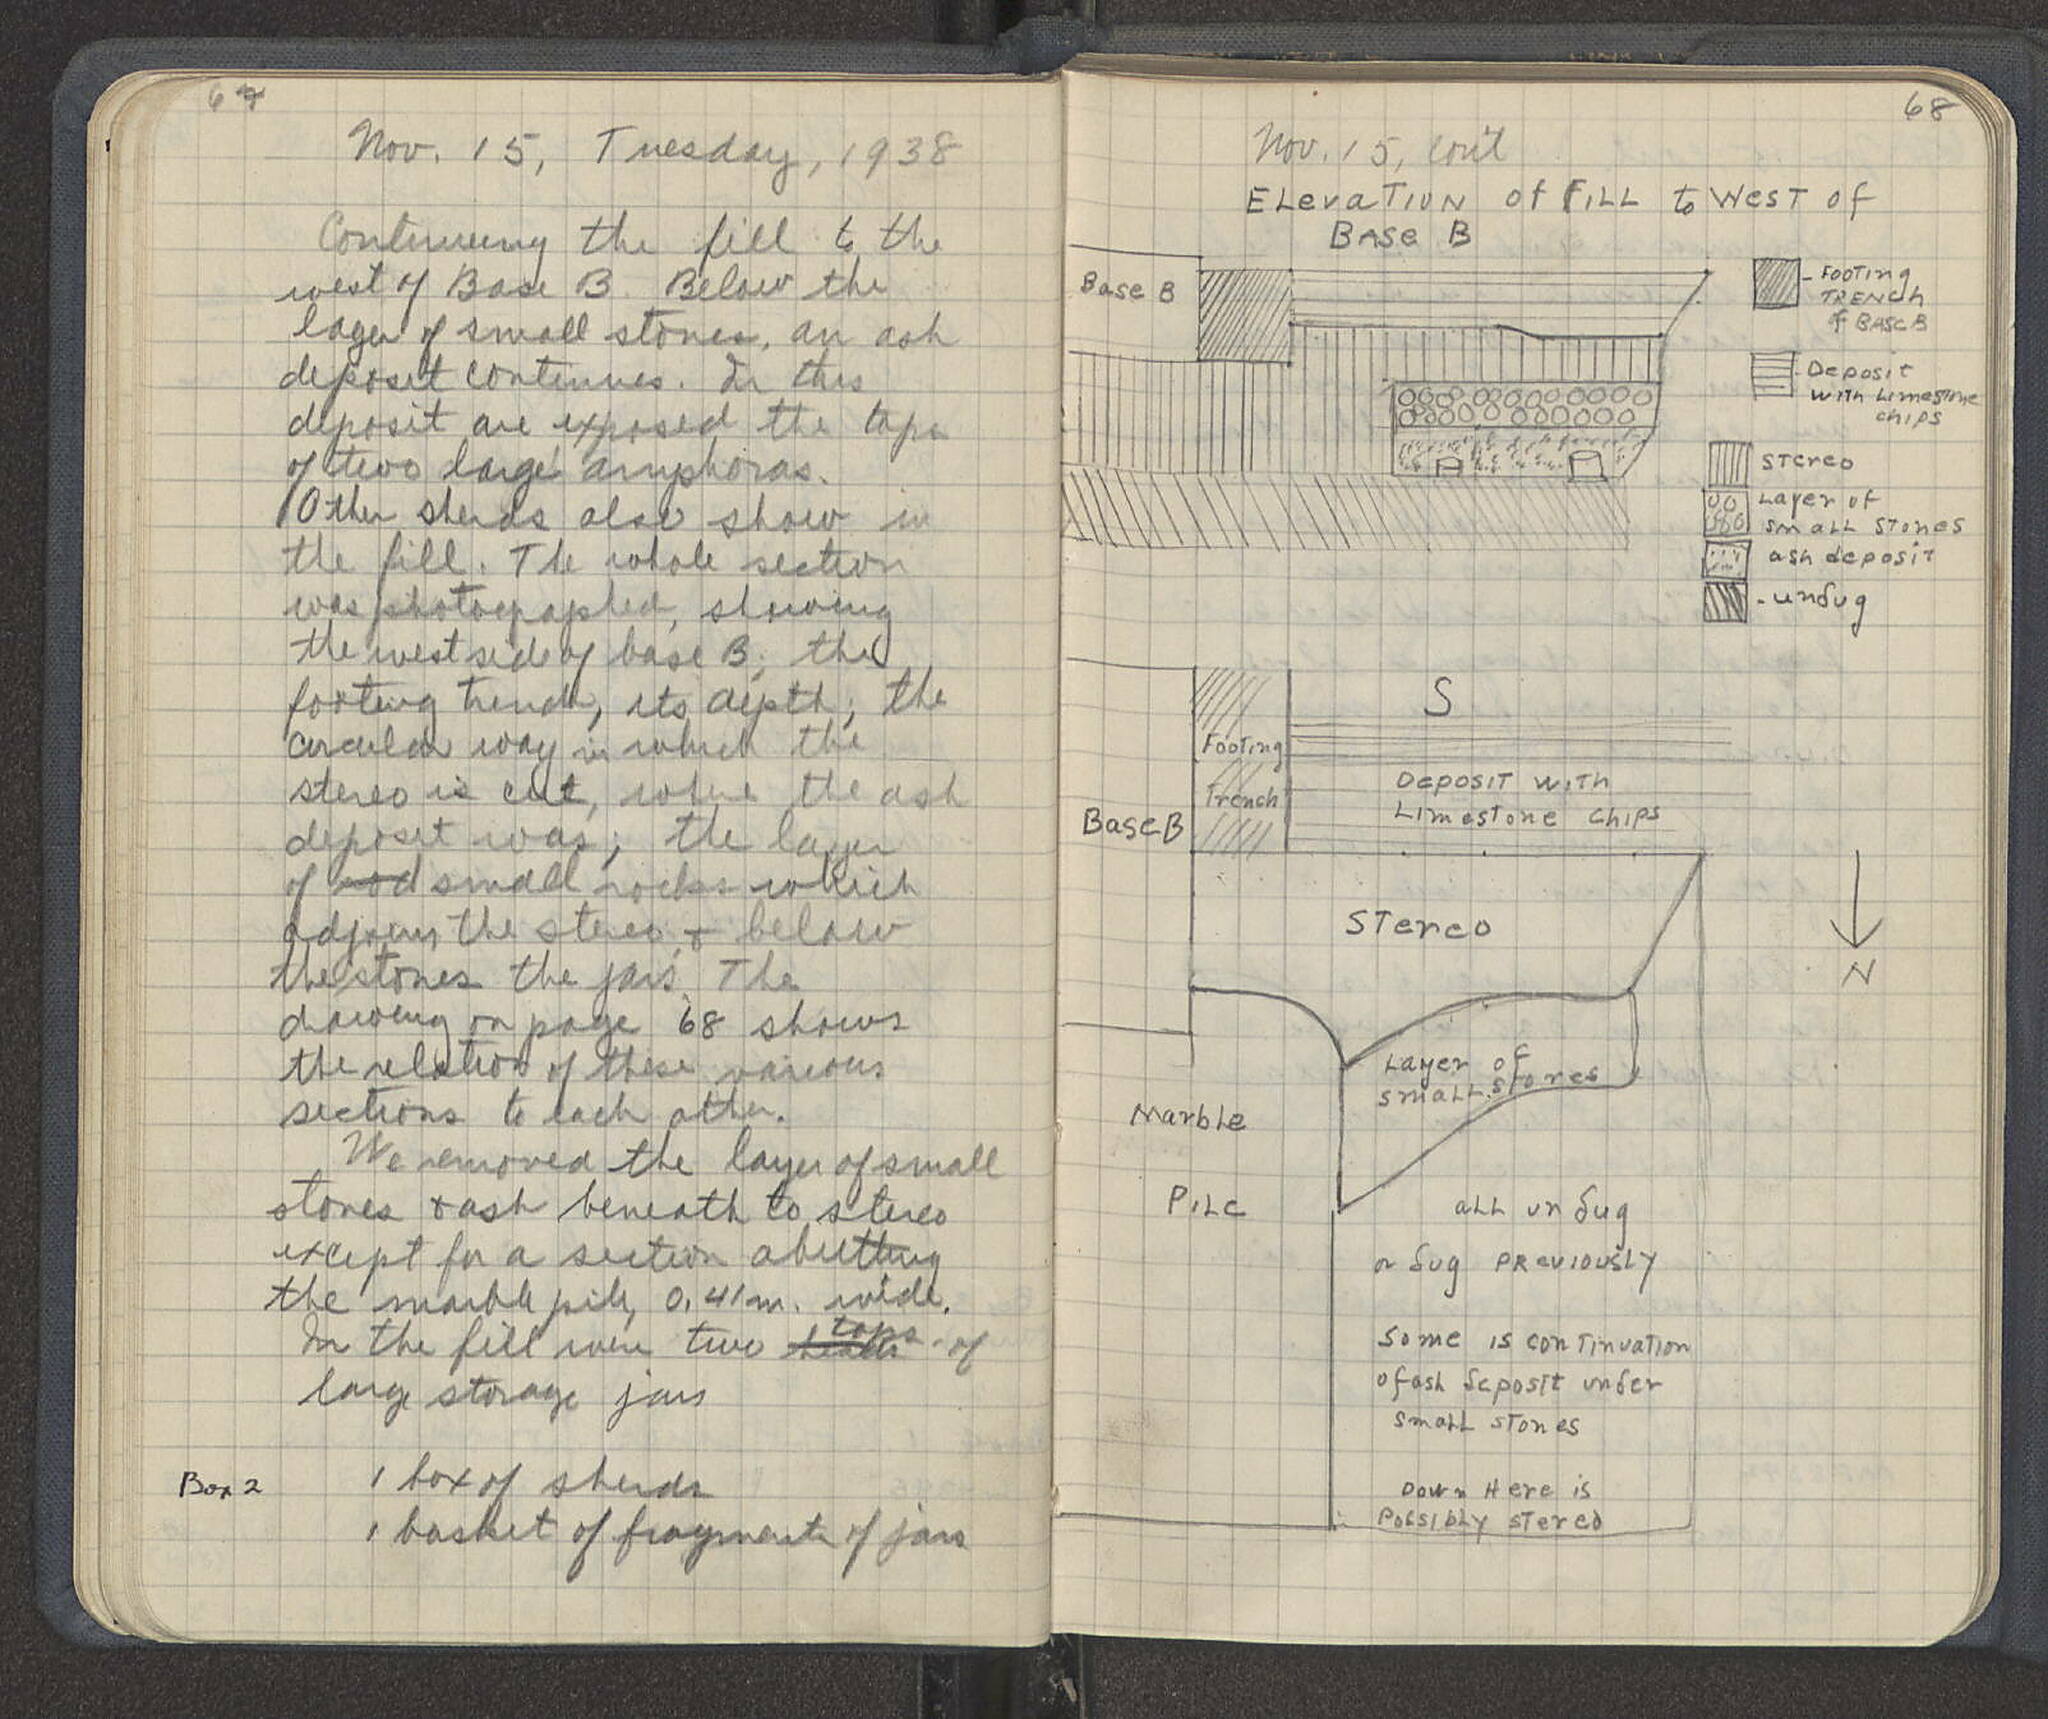 67
Nov. 15, Tuesday, 1938
Continuing the fill to the
west of Base B. Below the
layer of small stones, an ash
deposit continues. In this
deposit are exposed the tops
of two large amphoras.
Other sherds also show in
the fill. The whole section
was photographed, showing
the west side of base B; the
footing trench, its depth; the
circular way in which the
stereo is cut, where the ash
deposit was; the layer
of small rocks which
adjoins the stereo, & below
the stones the jars. The
drawing on page 68 shows
the relation of these various
sections to each other.
We removed the layer of small
stones & ash beneath to stereo
except for a section abutting
the marble pile, 0.41m. wide.
In the fill were two tops of
large storage jars
Box 2
1 box of sherds
1 basket of fragments of jars
68
Nov. 15, con't
Elevation of Fill to West of
Base B
Base B
- Footing
Trench
of Base B
- Deposit
with Limestone
chips
stereo
Layer of
small stones
ash deposit
- undug
S
Footing
Trench
Deposit with
Limestone chips
Base B
Stereo
N
Layer of
small stones
Marble
Pile
all undug
or dug previously
Some is continuation
of ash deposit under
small stones
Down Here is
Possibly stereo